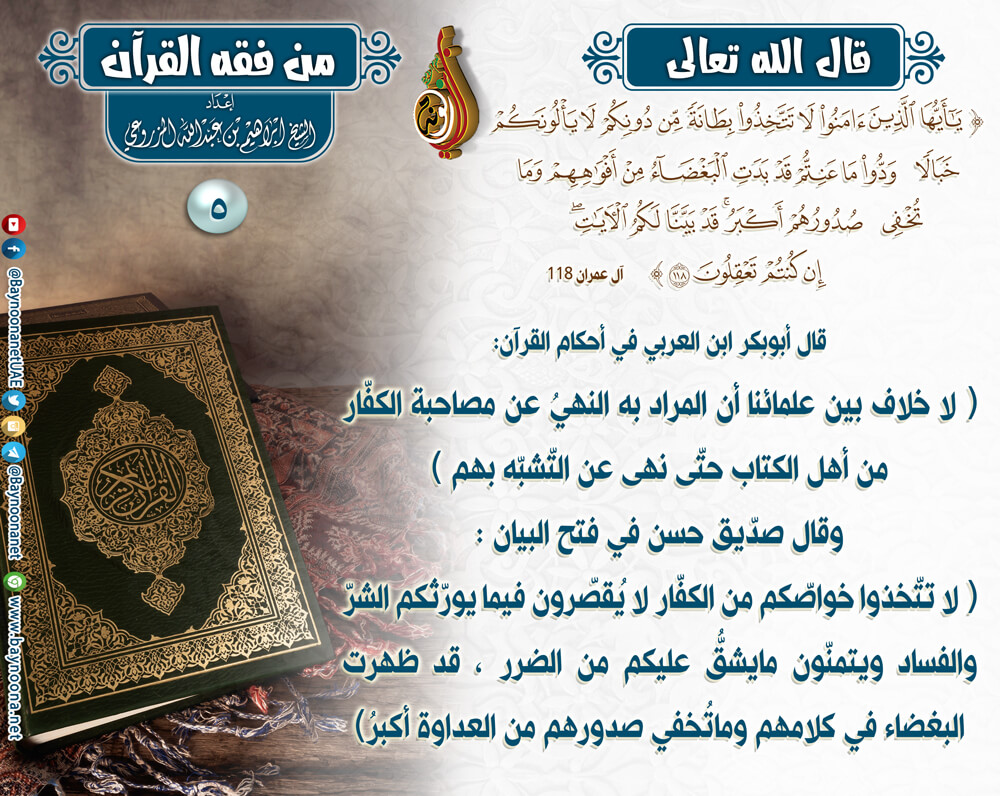 قال الله تعالى
﴿ يَٰٓأَيُّهَا ٱلَّذِينَ ءَامَنُوا۟ لَا تَتَّخِذُوا۟ بِطَانَةً مِّن دُونِكُمْ لَا يَأْلُونَكُمْ
خَبَالًا وَدُّوا۟ مَا عَنِتُّمْ قَدْ بَدَتِ ٱلْبَغْضَآءُ مِنْ أَفْوَٰهِهِمْ وَمَا
تُخْفِى صُدُورُهُمْ أَكْبَرُ ۚ قَدْ بَيَّنَّا لَكُمُ ٱلْءَايَٰتِ ۖ
إِن كُنتُمْ تَعْقِلُونَ ١١٨ ﴾ آل عمران 118
قال أبوبكر ابن العربي في أحكام القرآن:
( لا خلاف بين علمائنا أن المراد به النهيُ عن مصاحبة الكفّار
من أهل الكتاب حتّى نهى عن التّشبّه بهم )
وقال صدّيق حسن في فتح البيان :
( لا تتّخذوا خواصّكم من الكفّار لا يُقصّرون فيما يورّثكم الشرّ
والفساد ويتمنّون مايشقُّ عليكم من الضرر ، قد ظهرت
البغضاء في كلامهم وماتُخفي صدورهم من العداوة أكبرُ)
من فقه القرآن
إعداد
الشيخ ابراهيم بن عبدالله المزروعي
٥
القرآن الكريم
@BaynoonanetUAE
@Baynoonanet
www.baynoona.net